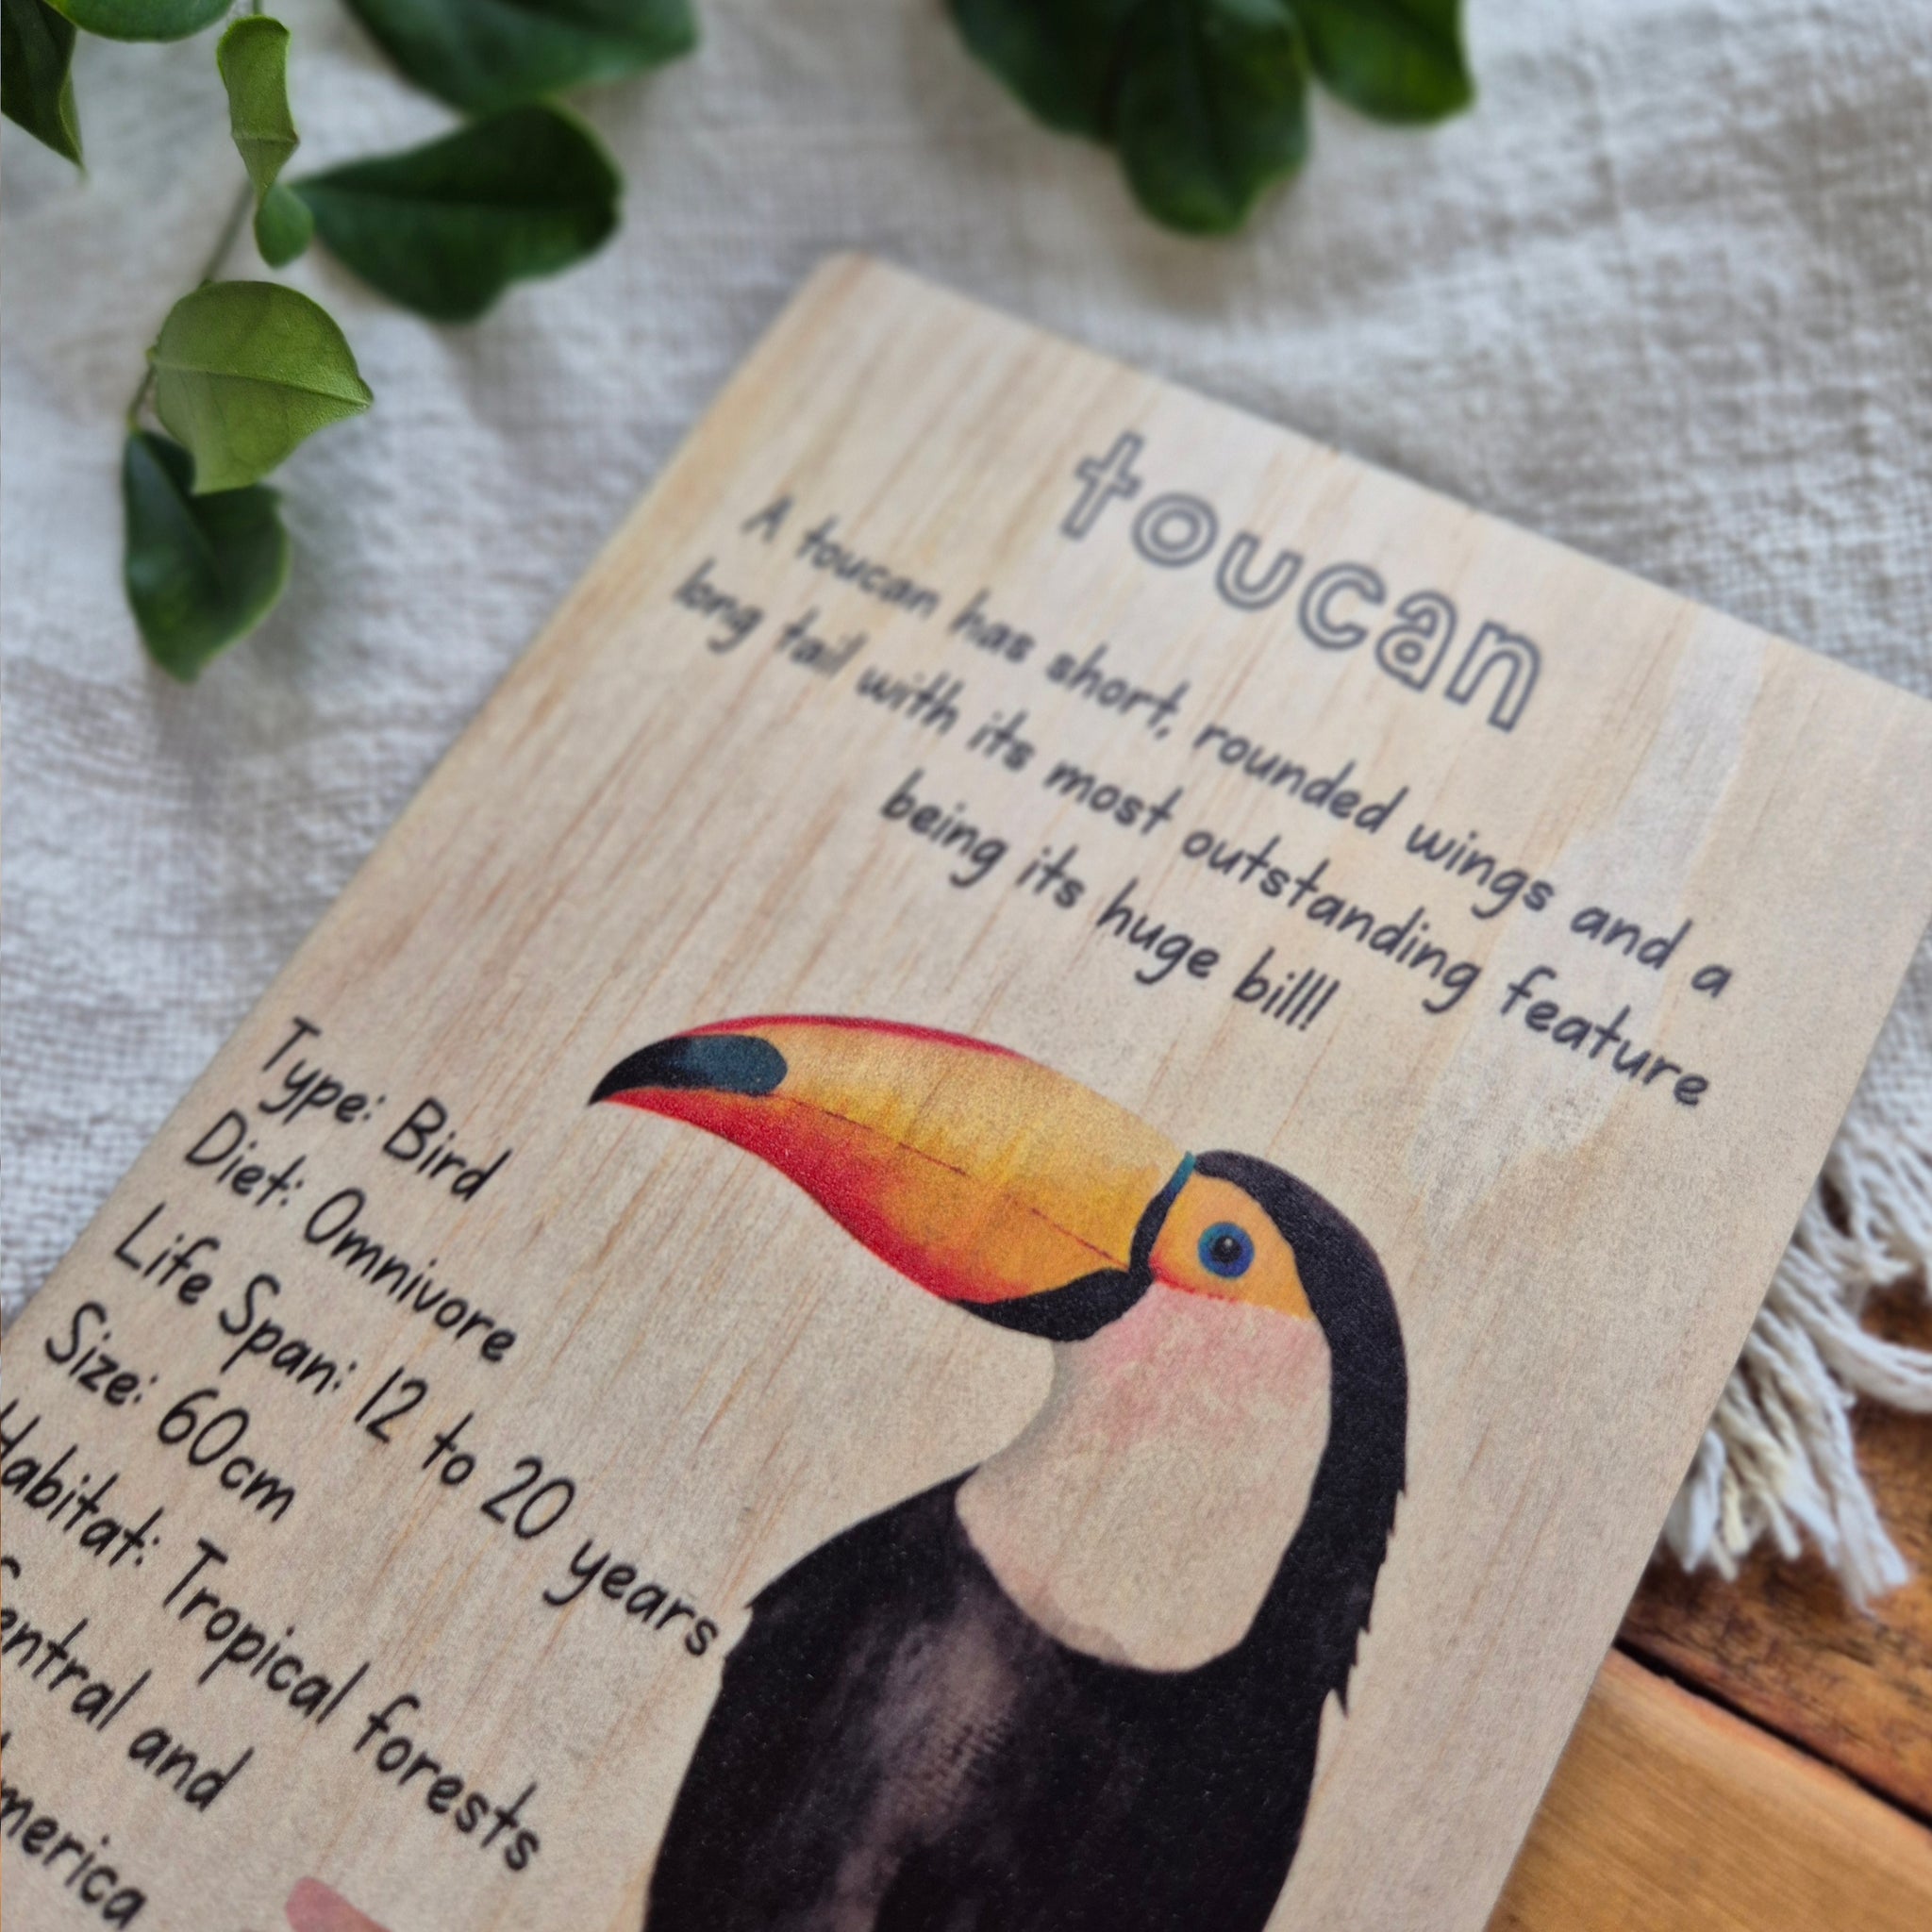 toucan
A toucan has short, rounded wings and a
long tail with its most outstanding feature
being its huge bill!
Type: Bird
Diet: Omnivore
Life Span: 12 to 20 years
Size: 60cm
Habitat: Tropical forests
Central and
America